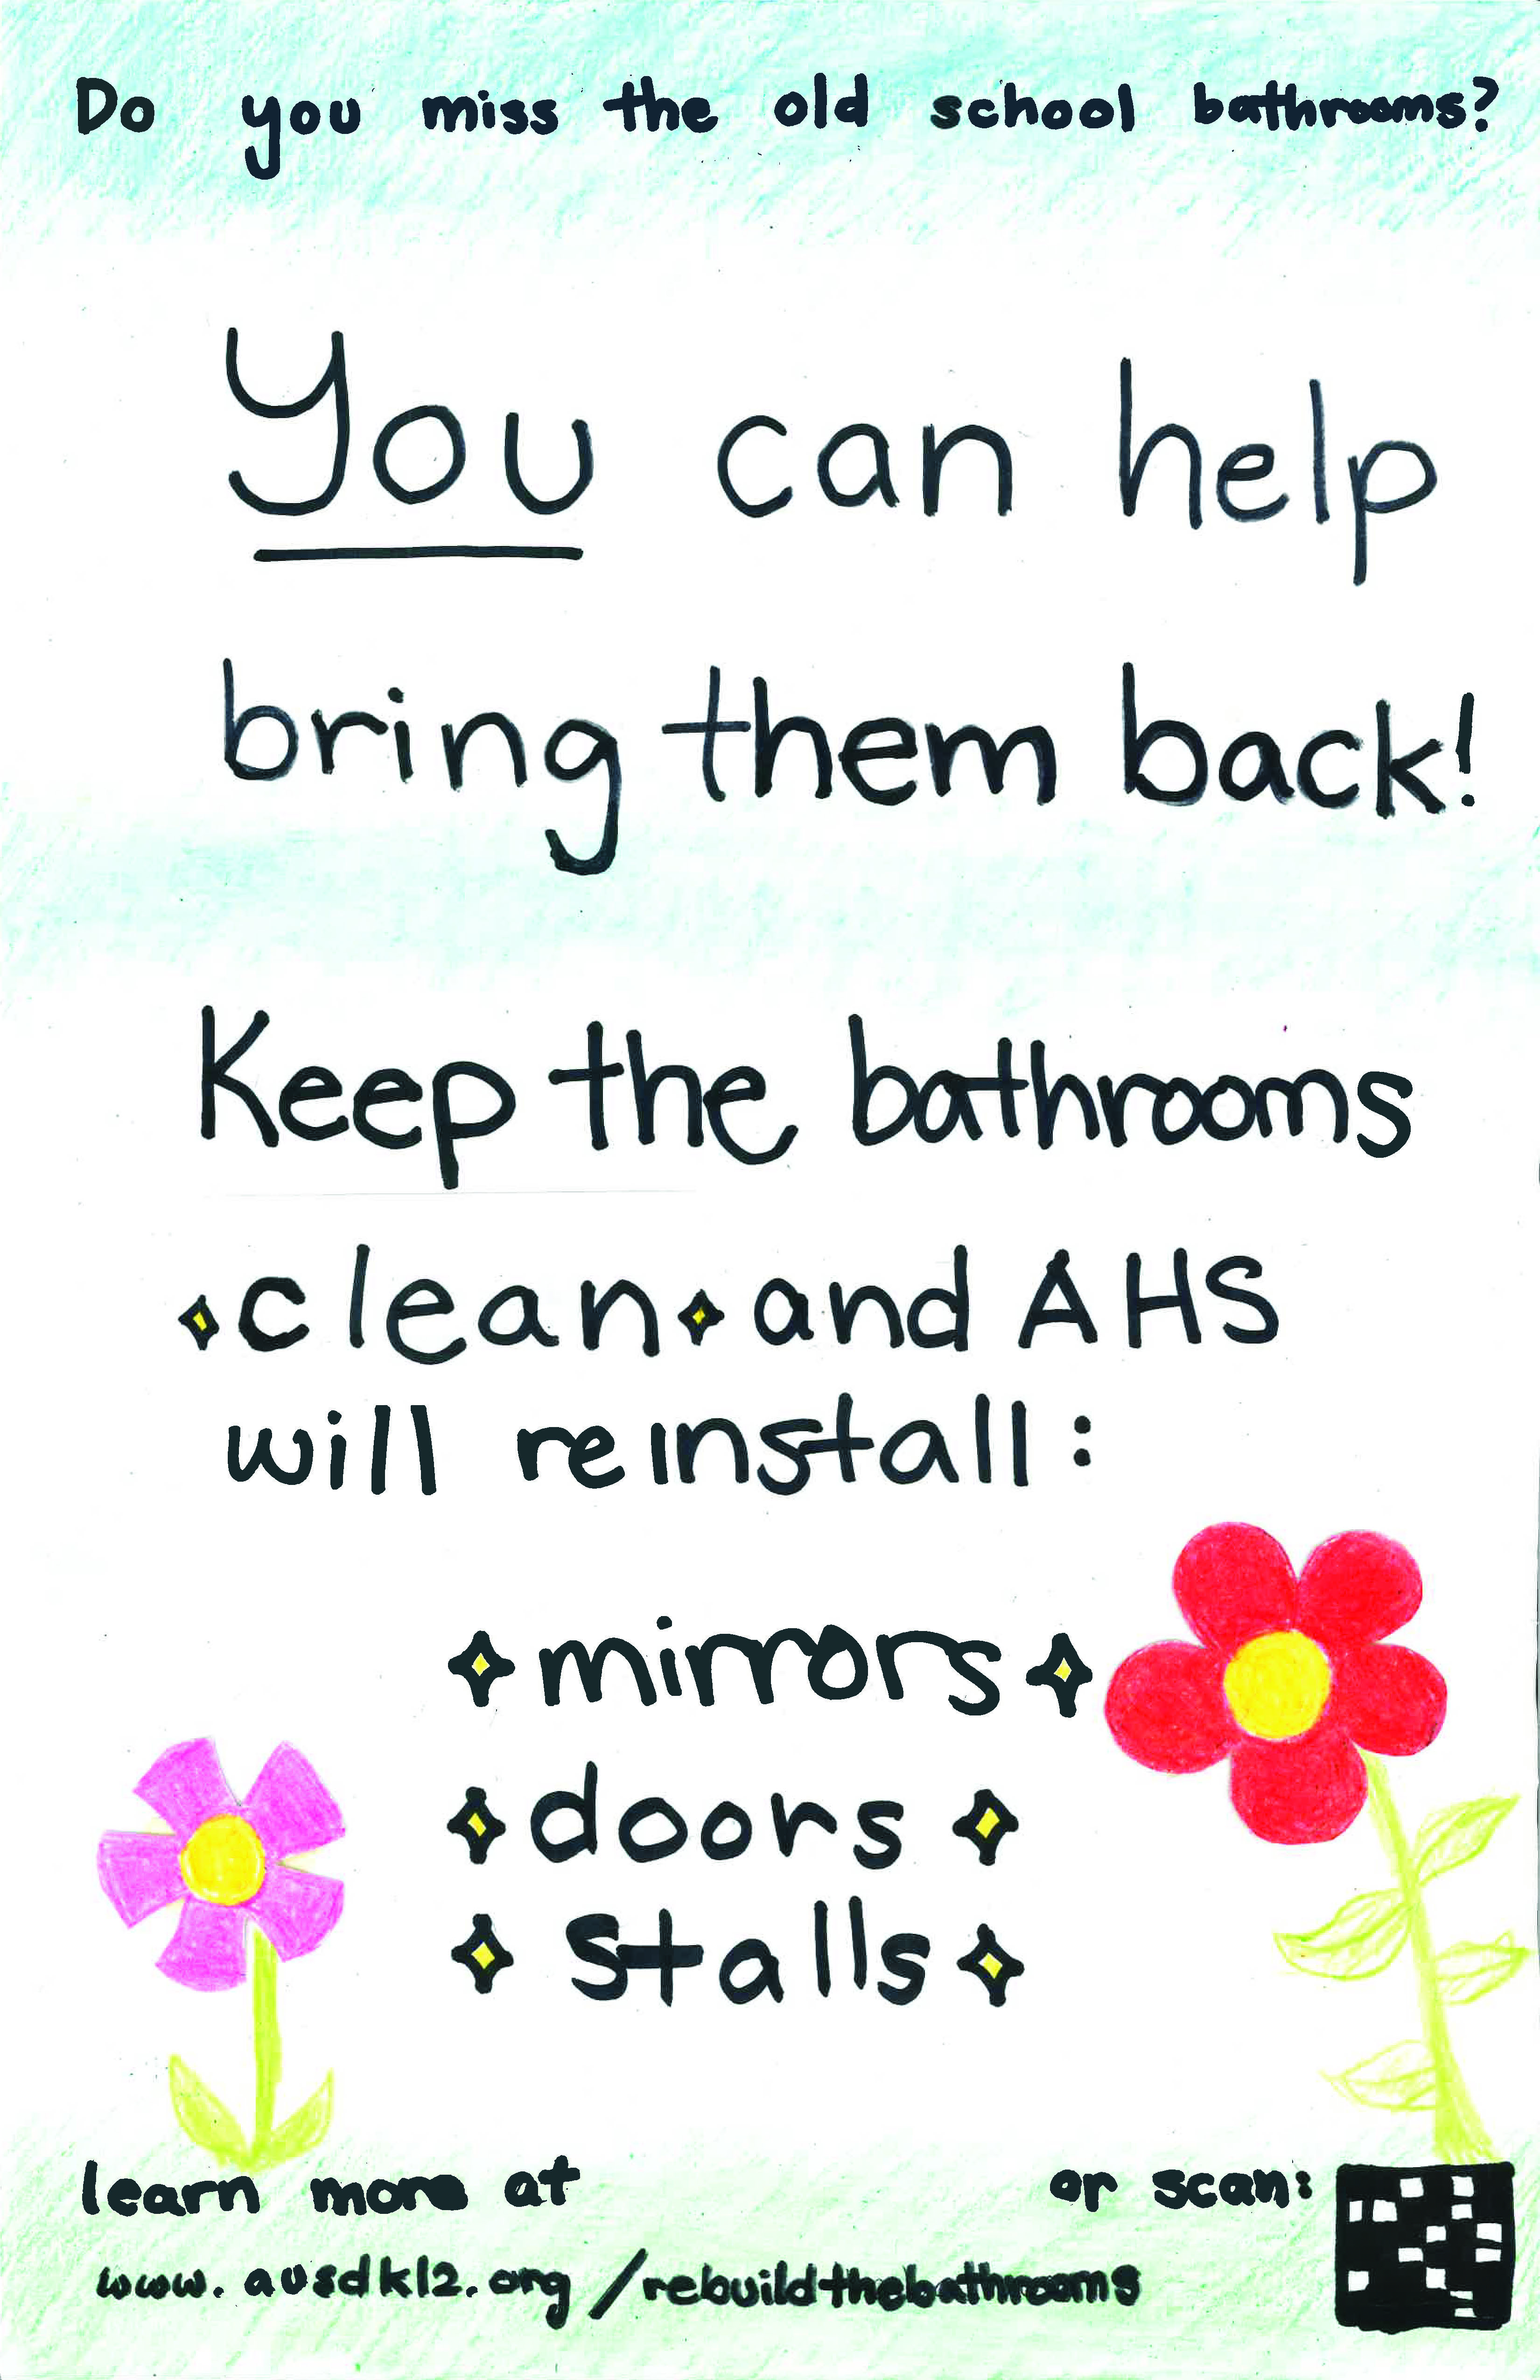 Do you miss the old school bathrooms?
You can help
bring them back!
Keep the bathrooms
clean and AHS
will reinstall:
mirrors
doors
stalls
learn more at
or scan:
www.ausdk12.org/rebuildthebathrooms